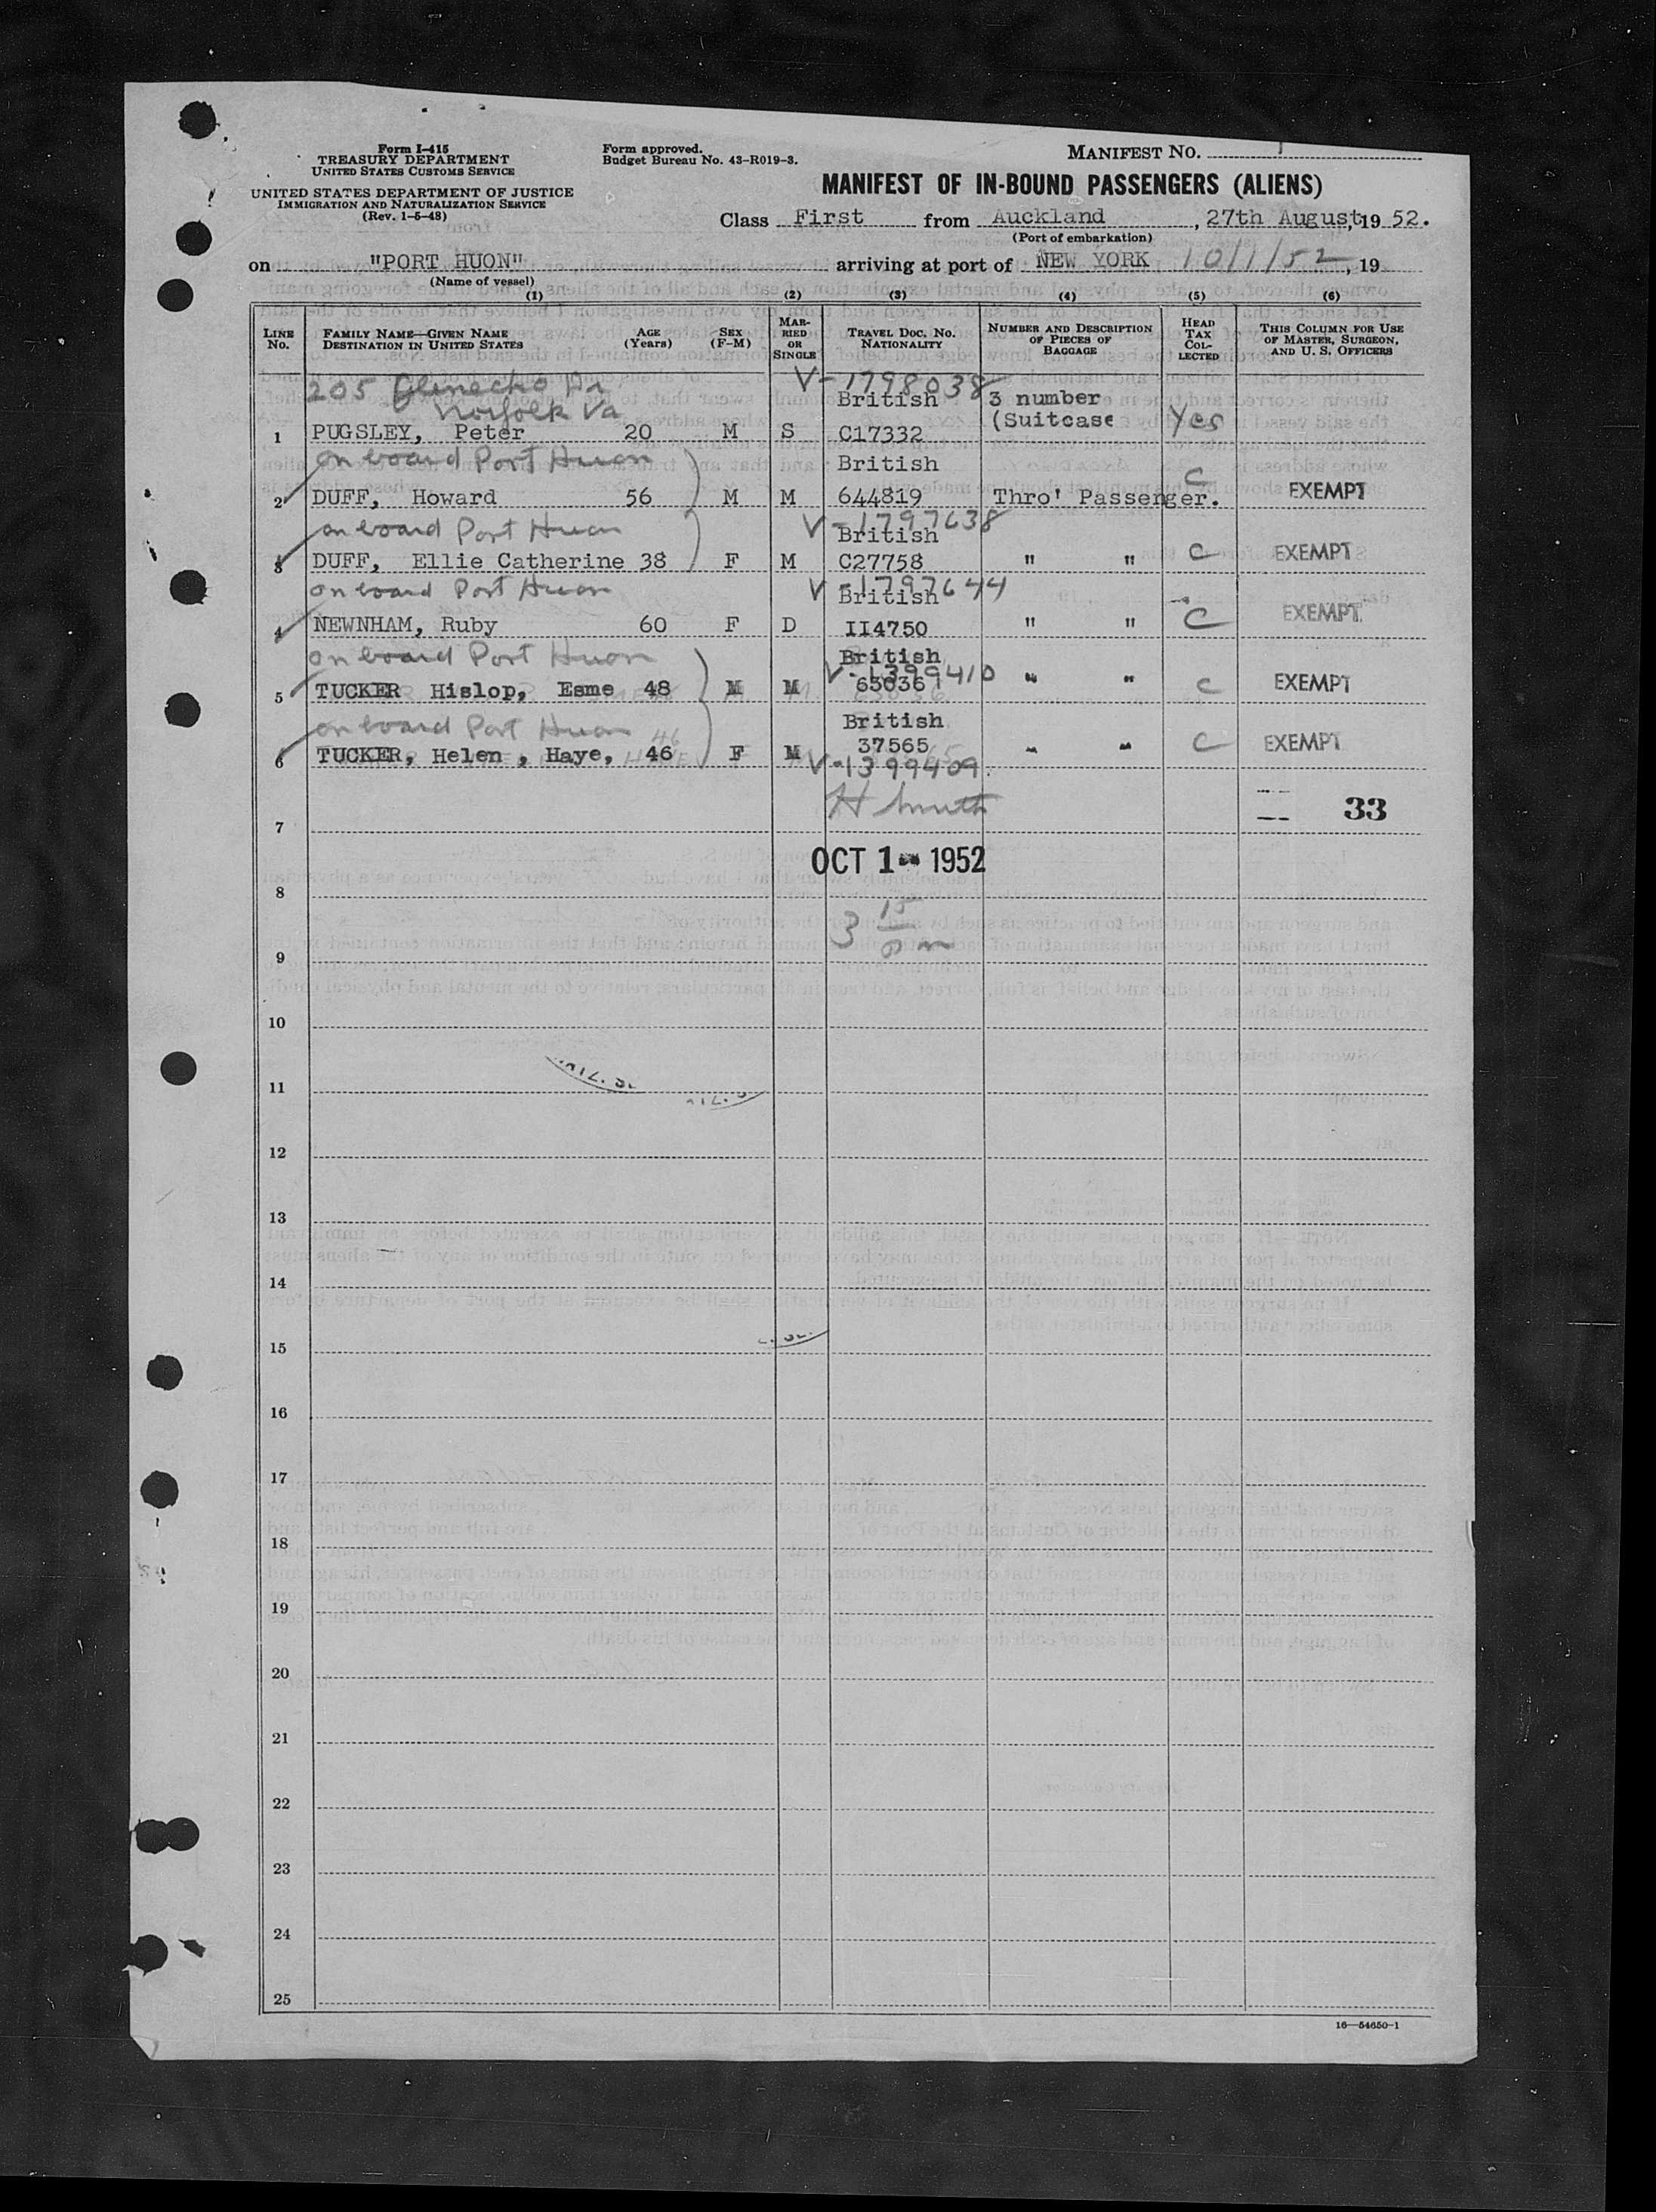 Form I-415
TREASURY DEPARTMENT
UNITED STATES CUSTOMS SERVICE
UNITED STATES DEPARTMENT OF JUSTICE
IMMIGRATION AND NATURALIZATION SERVICE
(Rev. 1-5-48)
Form approved.
Budget Bureau No. 43-R019-3.
MANIFEST NO.
MANIFEST OF IN-BOUND PASSENGERS (ALIENS)
Class First from Auckland, 27th August, 19 52.
(Port of embarkation)
on "PORT HUON" arriving at port of NEW YORK 10/1/52, 19
(Name of vessel)
(1) (2) (3) (4) (5) (6)
LINE No. FAMILY NAME—GIVEN NAME DESTINATION IN UNITED STATES AGE (Years) SEX (F-M) MARRIED OR SINGLE TRAVEL DOC. NO. NATIONALITY NUMBER AND DESCRIPTION OF PIECES OF BAGGAGE HEAD TAX COLLECTED THIS COLUMN FOR USE OF MASTER, SURGEON, AND U. S. OFFICERS
205 Glenecho Dr V-1798038
Norfolk Va British 3 number
1 PUGSLEY, Peter 20 M S C17332 (Suitcase Yes
on board Port Huon British
2 DUFF, Howard 56 M M 644819 Thro' Passenger. C EXEMPT
on board Port Huon V-1797638 British
3 DUFF, Ellie Catherine 38 F M C27758 " " C EXEMPT
on board Port Huon V-1797644 British
4 NEWNHAM, Ruby 60 F D II4750 " " C EXEMPT
on board Port Huon British
V-1399410
5 TUCKER Hislop, Esme 48 M M 65036 " " C EXEMPT
on board Port Huon British
46
6 TUCKER, Helen , Haye, 46 F M 37565 " " C EXEMPT
V-1399409
H Smith 33
7
OCT 1 1952
8
3 15 pm
9
10
11
12
13
14
15
16
17
18
19
20
21
22
23
24
25
16—54650-1